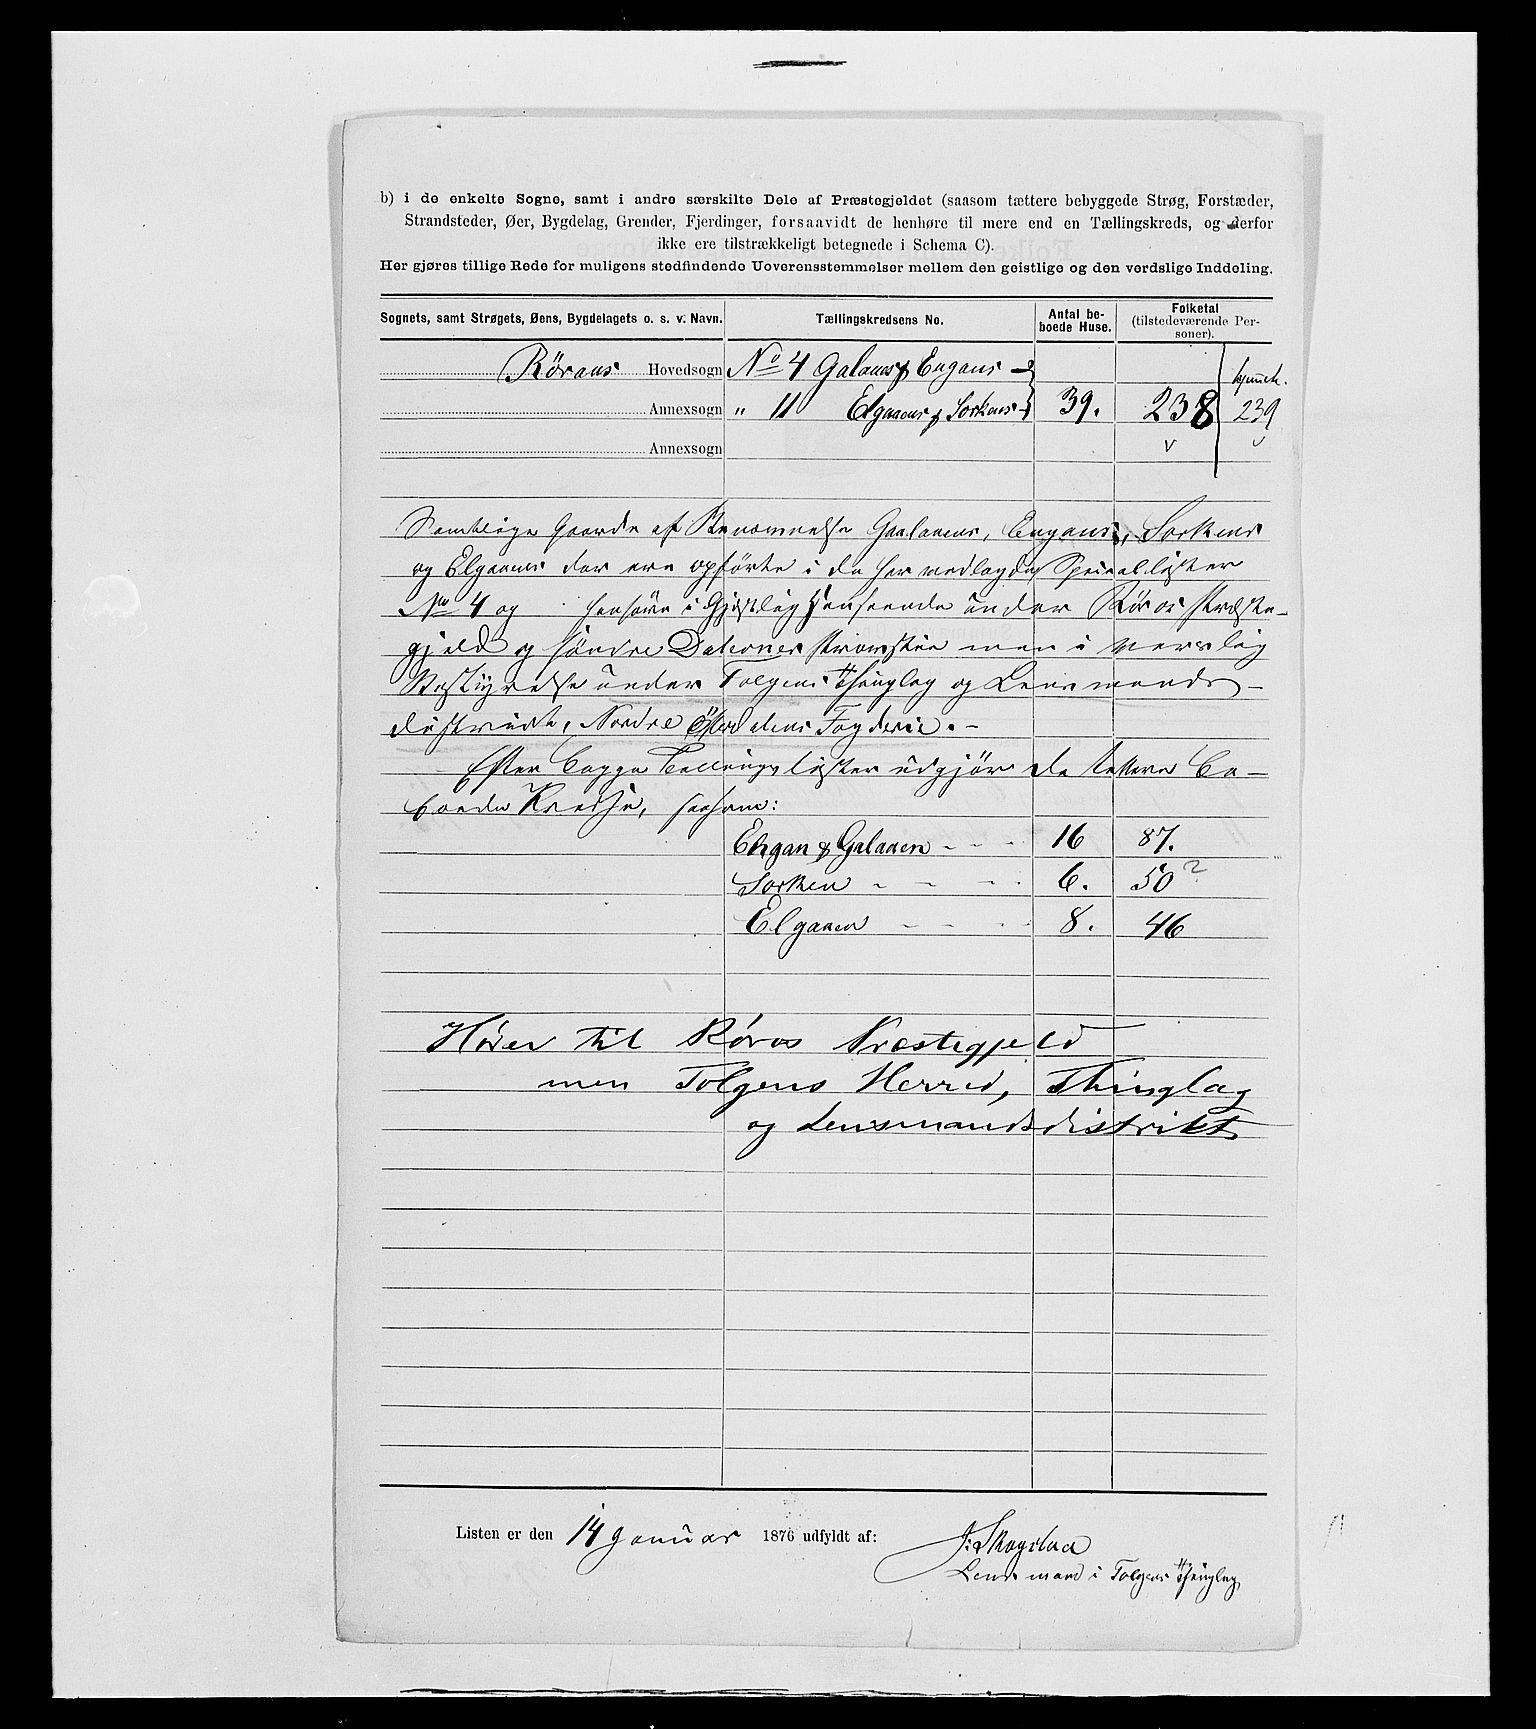 b) i de enkelte Sogne, samt i andre særskilte Dele af Præstegjeldet (saasom tættere bebyggede Strøg, Forstæder,
Strandsteder, Øer, Bygdelag, Grender, Fjerdinger, forsaavidt de henhøre til mere end en Tællingskreds, og derfor
ikke ere tilstrækkeligt betegnede i Schema C).
Her gjøres tillige Rede for muligens stedfindende Uoverensstemmelser mellem den geistlige og den verdslige Inddeling.
Sognets, samt Strøgets, Øens, Bygdelagets o. s. v. Navn. Tællingskredsens No. Antal be-boede Huse. Folketal (tilstedeværende Per-soner).
Röraas Hovedsogn No 4 Galaaens & Engans
Annexsogn " 11 Elgaaens & Sorkens 39. 238 239
Annexsogn
Samtlige Gaarde af Benævnelse Gaalaaens, Engans, Sorkens
og Elgaaens der ere opførte i de her vedlagde Speciallister
No 4 og henhøre i Gjestlig Henseende under Röros Præste-
gjeld og söndre Dalernes Provstie men i verslig
Bestyrelse under Tolgens Thinglag og Lensmands-
distrikt, Nordre Österdalens Fogderie.-
Efter begge Tellingslister udgjör de tettere be-
boede Kredse, saasom:
Engan & Galaaen 16 87.
Sorken 6. 50 ?
Elgaaen 8. 46
Hører til Røros Præstegjeld
men Tolgens Herred, Thinglag
og Lensmandsdistrikt
Listen er den 14 Januar 1876 udfyldt af:
J. Skogstad
Lensmand i Tolgens Thinglag